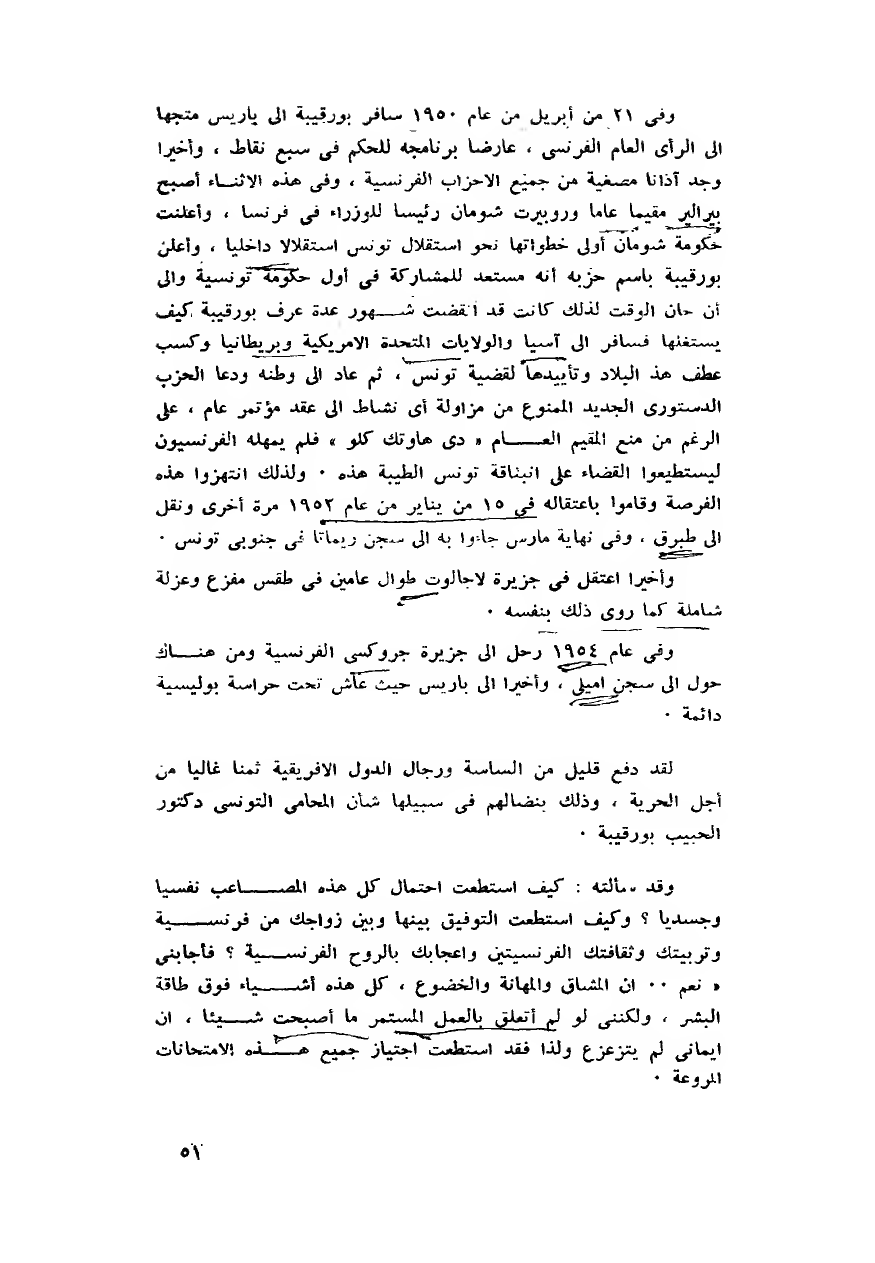 وفى ٢١ من أبريل من عام ١٩٥٠ سافر بورقيبة الى باريس متجها
الى الرأى العام الفرنسى ، عارضا برنامجه للحكم فى سبع نقاط ، وأخيرا
وجد آذانا مصغية من جميع الاحزاب الفرنسية ، وفى هذه الاثنـاء أصبح
بيرالير مقيما عاما وروبيرت شومان رئيسا للوزراء فى فرنسا ، وأعلنت
حكومة شومان أولى خطواتها نحو استقلال تونس استقلالا داخليا ، وأعلن
بورقيبة باسم حزبه أنه مستعد للمشاركة فى أول حكومة تونسية والى
أن حان الوقت لذلك كانت قد انقضت شـــهور عدة عرف بورقيبة كيف
يستغلها فسافر الى آسيا والولايات المتحدة الامريكية وبريطانيا وكسب
عطف هذ البلاد وتأييدها لقضية تونس ، ثم عاد الى وطنه ودعا الحزب
الدستورى الجديد الممنوع من مزاولة أى نشاط الى عقد مؤتمر عام ، على
الرغم من منع المقيم العـــــام « دى هاوتك كلو » فلم يمهله الفرنسيون
ليستطيعوا القضاء على انبثاقة تونس الطيبة هذه ٠ ولذلك انتهزوا هذه
الفرصة وقاموا باعتقاله فى ١٥ من يناير من عام ١٩٥٢ مرة أخرى ونقل
الى طبرق ، وفى نهاية مارس جاءوا به الى سجن ريماثا فى جنوبى تونس ٠
وأخيرا اعتقل فى جزيرة لاجالوت طوال عامين فى طقس مفزع وعزلة
شاملة كما روى ذلك بنفسه ٠
وفى عام ١٩٥٤ رحل الى جزيرة جروكسى الفرنسية ومن هنــاك
حول الى سجن اميلى ، وأخيرا الى باريس حيث عاش تحت حراسة بوليسية
دائمة ٠
لقد دفع قليل من الساسة ورجال الدول الافريقية ثمنا غاليا من
أجل الحرية ، وذلك بنضالهم فى سبيلها شأن المحامى التونسى دكتور
الحبيب بورقيبة ٠
وقد سألته : كيف استطعت احتمال كل هذه المصــــــاعب نفسيا
وجسديا ؟ وكيف استطعت التوفيق بينها وبين زواجك من فرنســــية
وتربيتك وثقافتك الفرنسيتين واعجابك بالروح الفرنســـية ؟ فأجابنى
« نعم ٠٠ ان المشاق والمهانة والخضوع ، كل هذه أشـــــياء فوق طاقة
البشر ، ولكننى لو لم أتعلق بالعمل المستمر ما أصبحت شـــيئا ، ان
ايمانى لم يتزعزع ولذا فقد استطعت اجتياز جميع هـــــذه الامتحانات
المروعة ٠
٥١